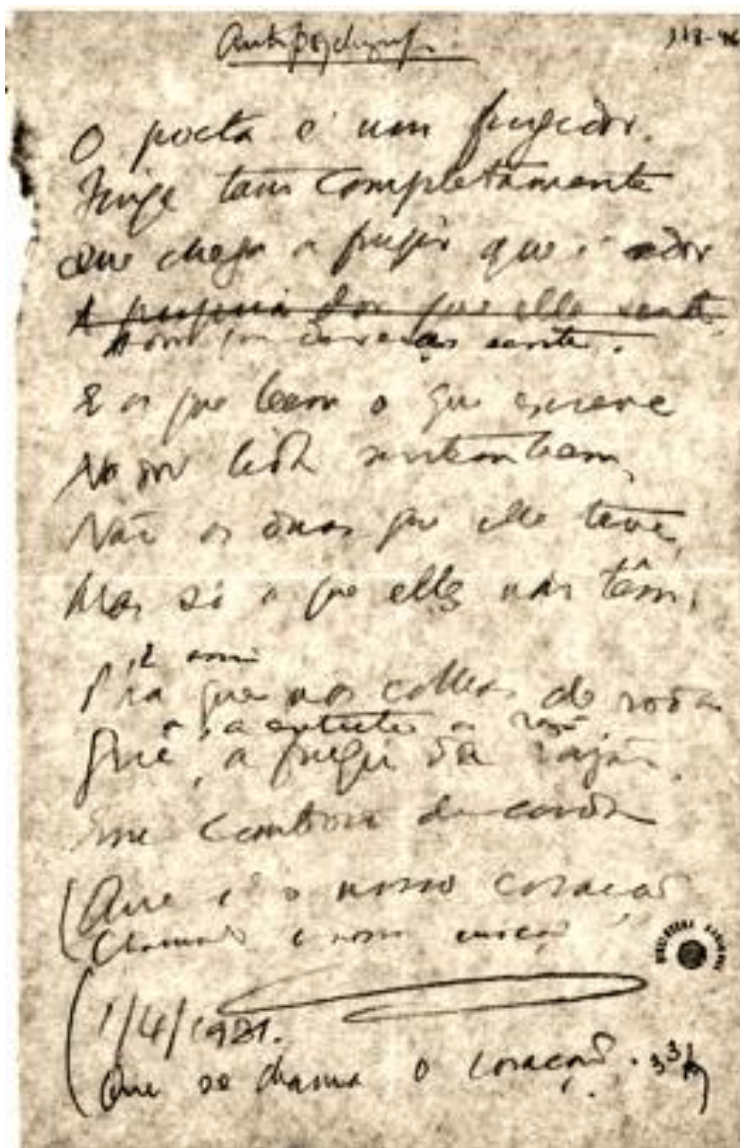 Autopsychografia 118-46
O poeta é um fingidor.
Finge tam completamente
Que chega a fingir que é dor
A propria dor que elle sente
A dor que devéras sente.
E os que lêem o que escreve
Na dor lida sentem bem,
Não as duas que elle teve,
Mas só a que elles não têm,
E assi
P'ra que nas calhas de roda
a entreter a razão,
Gira, a fingir da razão,
Esse comboio de corda
Que é o nosso coração
Chamado o nosso coração
1/4/1931.
Que se chama o coração.
BIBLIOTECA NACIONAL